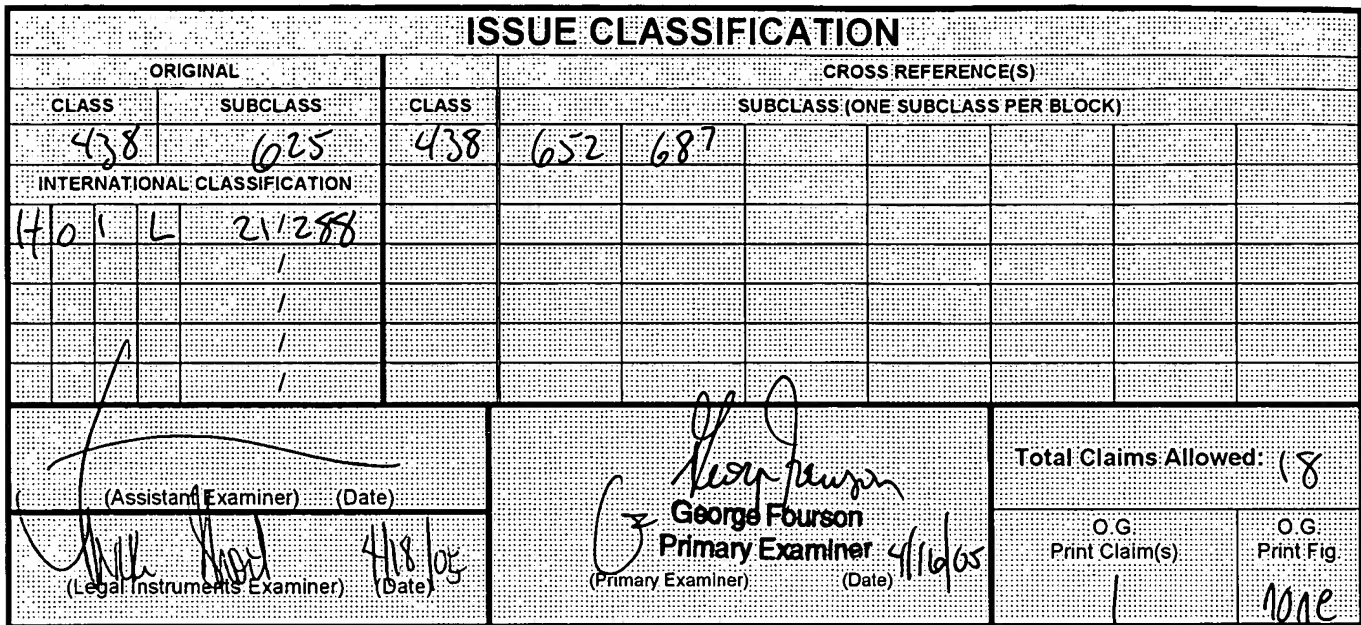 ISSUE CLASSIFICATION
ORIGINAL CROSS REFERENCE(S)
CLASS SUBCLASS CLASS SUBCLASS (ONE SUBCLASS PER BLOCK)
438 625 438 652 687
INTERNATIONAL CLASSIFICATION
H 0 1 L 21/288
/
/
/
/
(Assistant Examiner) (Date)
4/18/05
(Legal Instruments Examiner) (Date)
George Fourson
Primary Examiner 4/16/05
(Primary Examiner) (Date)
Total Claims Allowed: 18
O.G.
Print Claim(s)
1
O.G.
Print Fig.
none